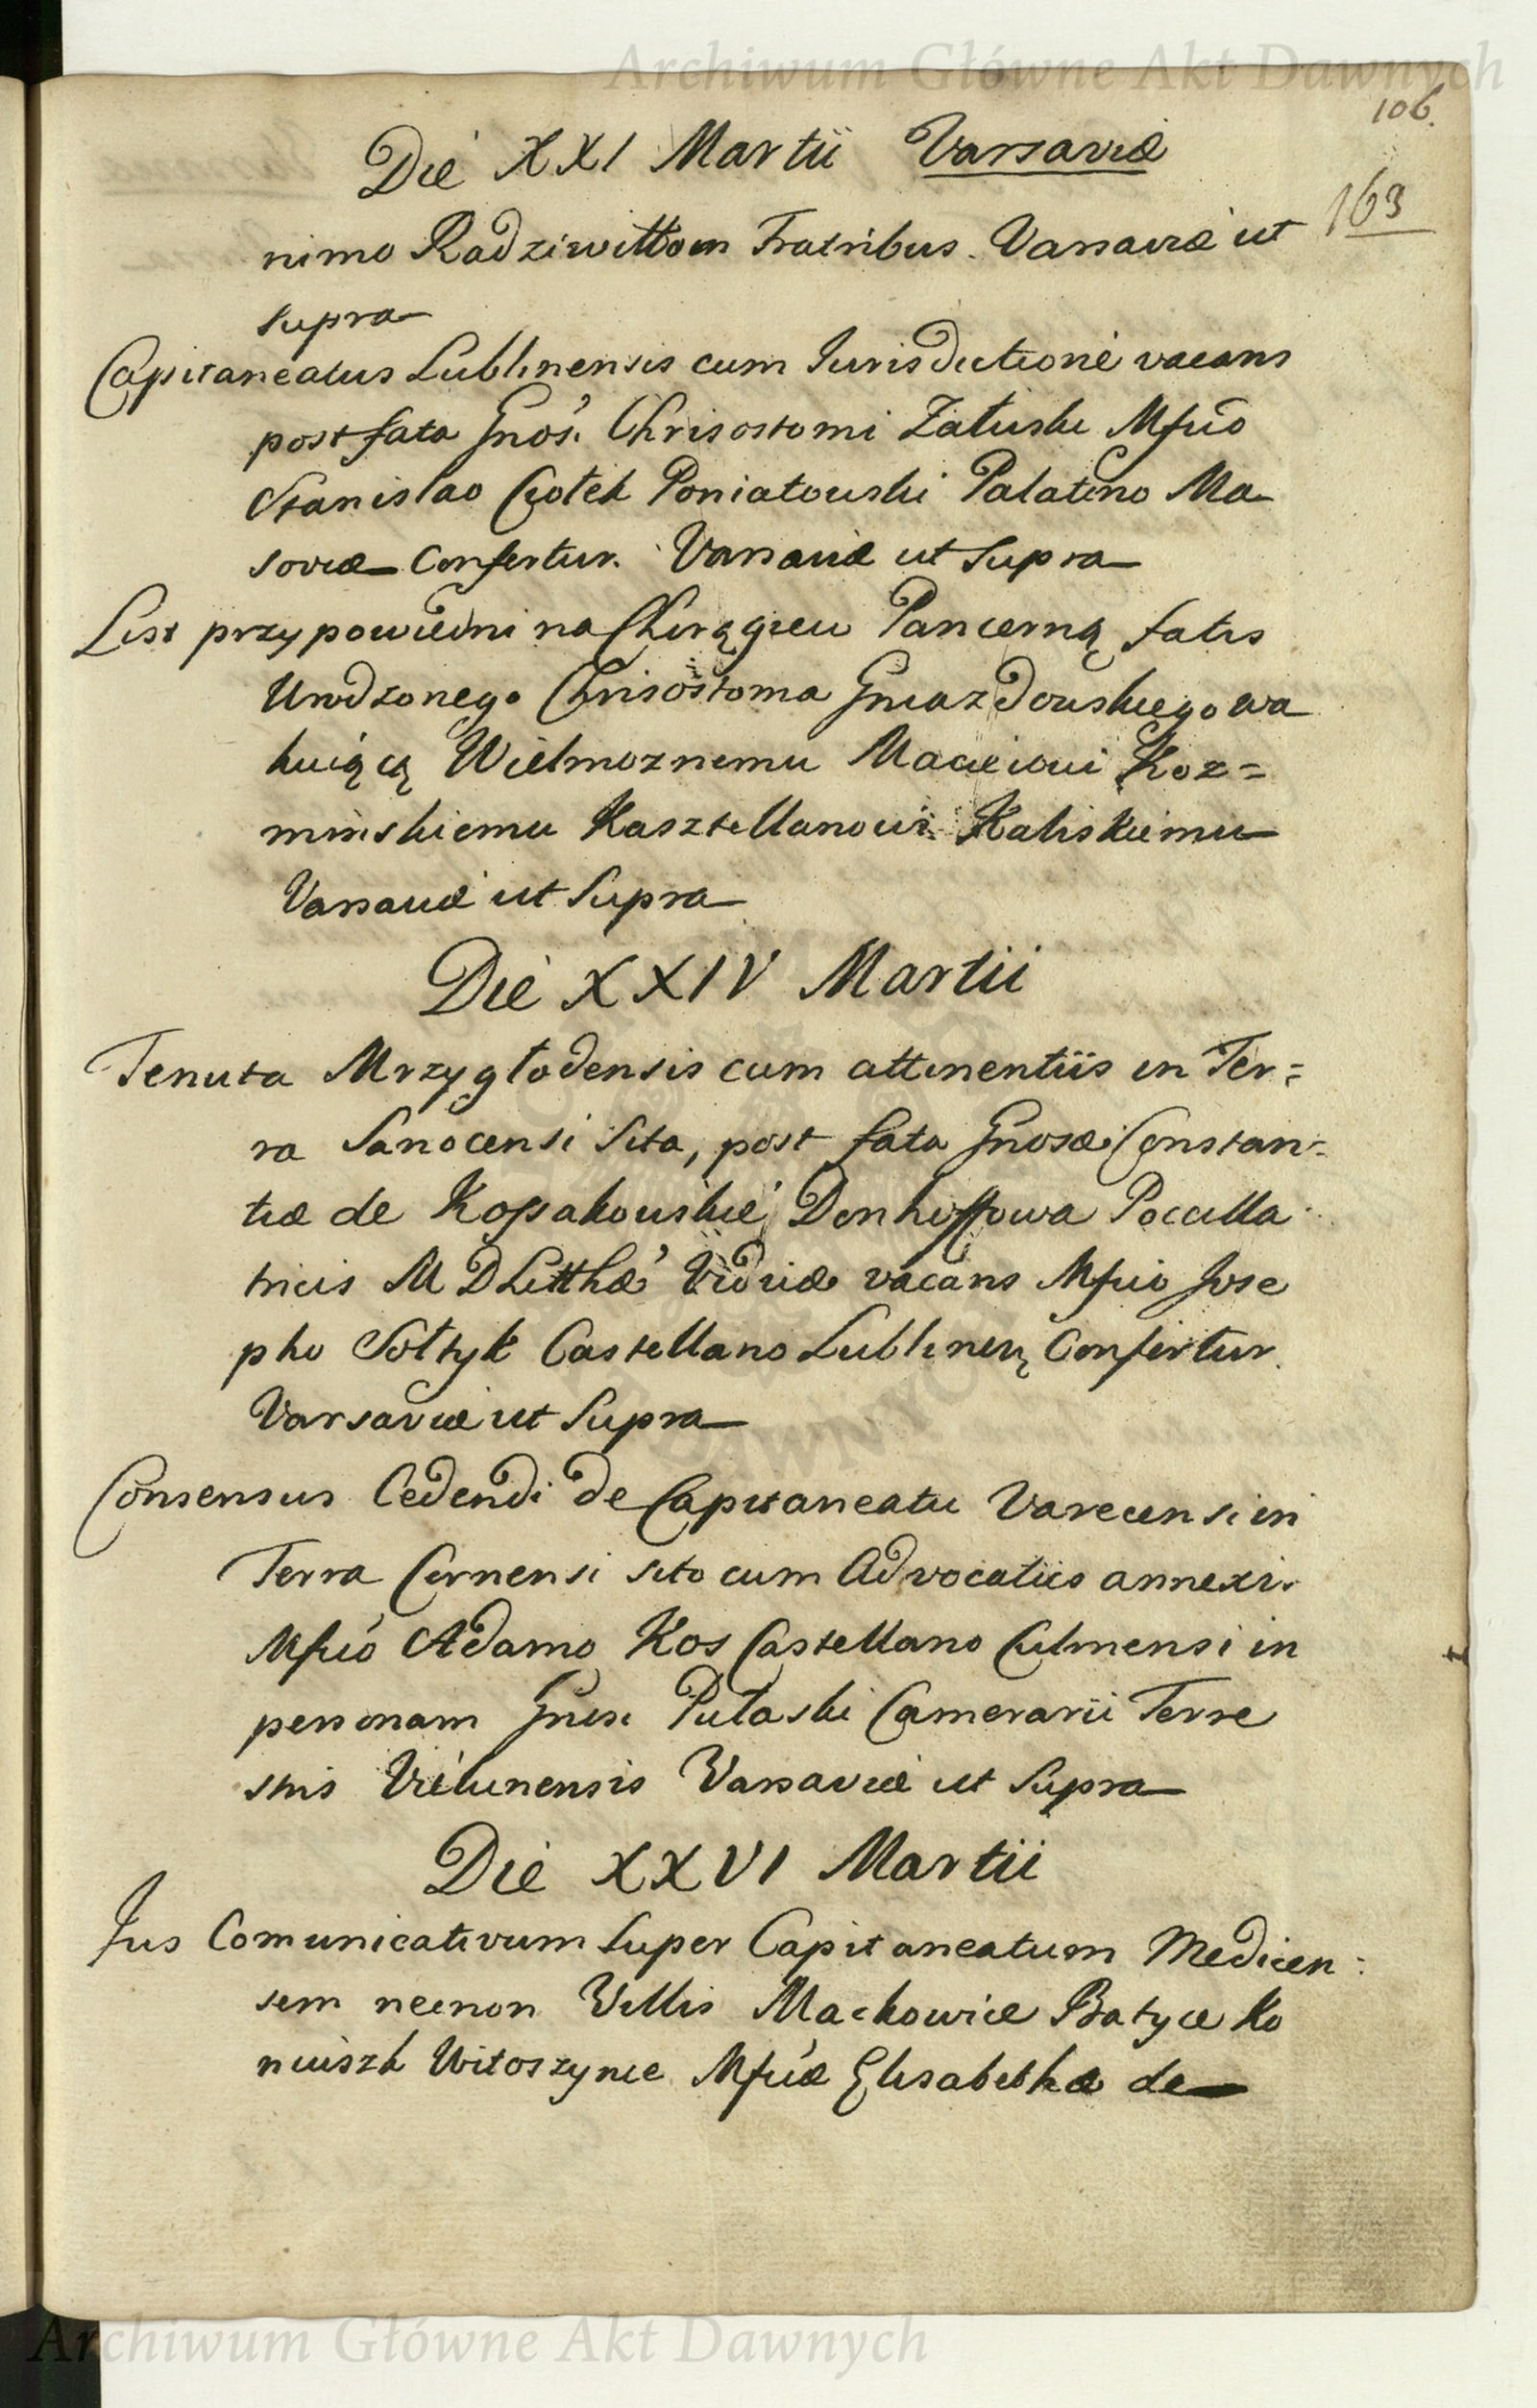 Archiwum Główne Akt Dawnych
106.
Die XXI Martii Varsaviæ
163
nimo Radziwiłłom Fratribus. Varsaviæ ut
supra
Capitaneatus Lublinensis cum Iurisdictione vacans
post fata Gnosi Chrisostomi Załuski Mfico
Stanislao Ciołek Poniatowski Palatino Ma
soviæ Confertur. Varsaviæ ut Supra
List przypowiedni na Chorągiew Pancerną fatis
Urodzonego Chrisostoma Gniazdowskiego wa
kuiącą Wielmoznemu Maciejowi Koz=
minskiemu Kasztellanowi Kaliskiemu
Varsaviæ ut Supra
Die XXIV Martii
Tenuta Mrzygłodensis cum attinentiis in Ter=
ra Sanocensi Sita, post fata Gnosæ Constan=
tiæ de Kossakowskie Donhoffowa Pocilla
tricis M D Litthæ Viduæ vacans Mfico Jose
pho Sołtyk Castellano Lublinen Confertur.
Varsaviæ ut Supra
Consensus Cedendi de Capitaneatu Varecensi in
Terra Cernensi sito cum Advocatiis annexis
Mfico Adamo Kos Castellano Culmensi in
personam Gnosi Pułaski Camerarii Terre
stris Vielunensis Varsaviæ ut Supra
Die XXVI Martii
Jus Comunicativum Super Capitaneatum Medicen=
sem necnon Villis Mackowice Batyce Ko
niuszk Witoszynce Mficæ Elisabethæ de
Archiwum Główne Akt Dawnych